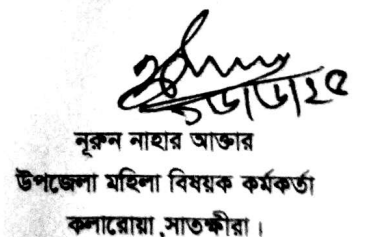 নূরুন নাহার আক্তার
উপজেলা মহিলা বিষয়ক কর্মকর্তা
কলারোয়া ,সাতক্ষীরা।